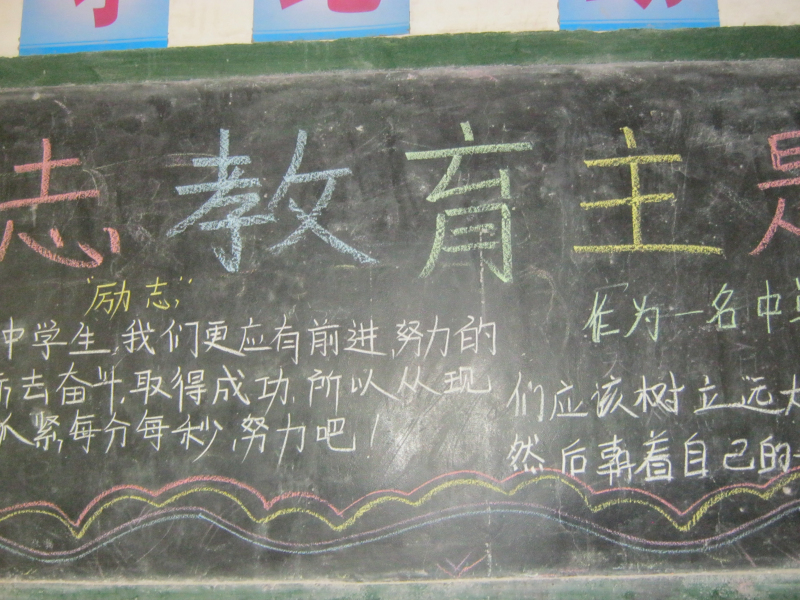 志教育主
"励志"
中学生,我们更应有前进,努力的
去奋斗,取得成功,所以从现
紧每分每秒,努力吧!
作为一名中
们应该树立远大
然后朝着自己的